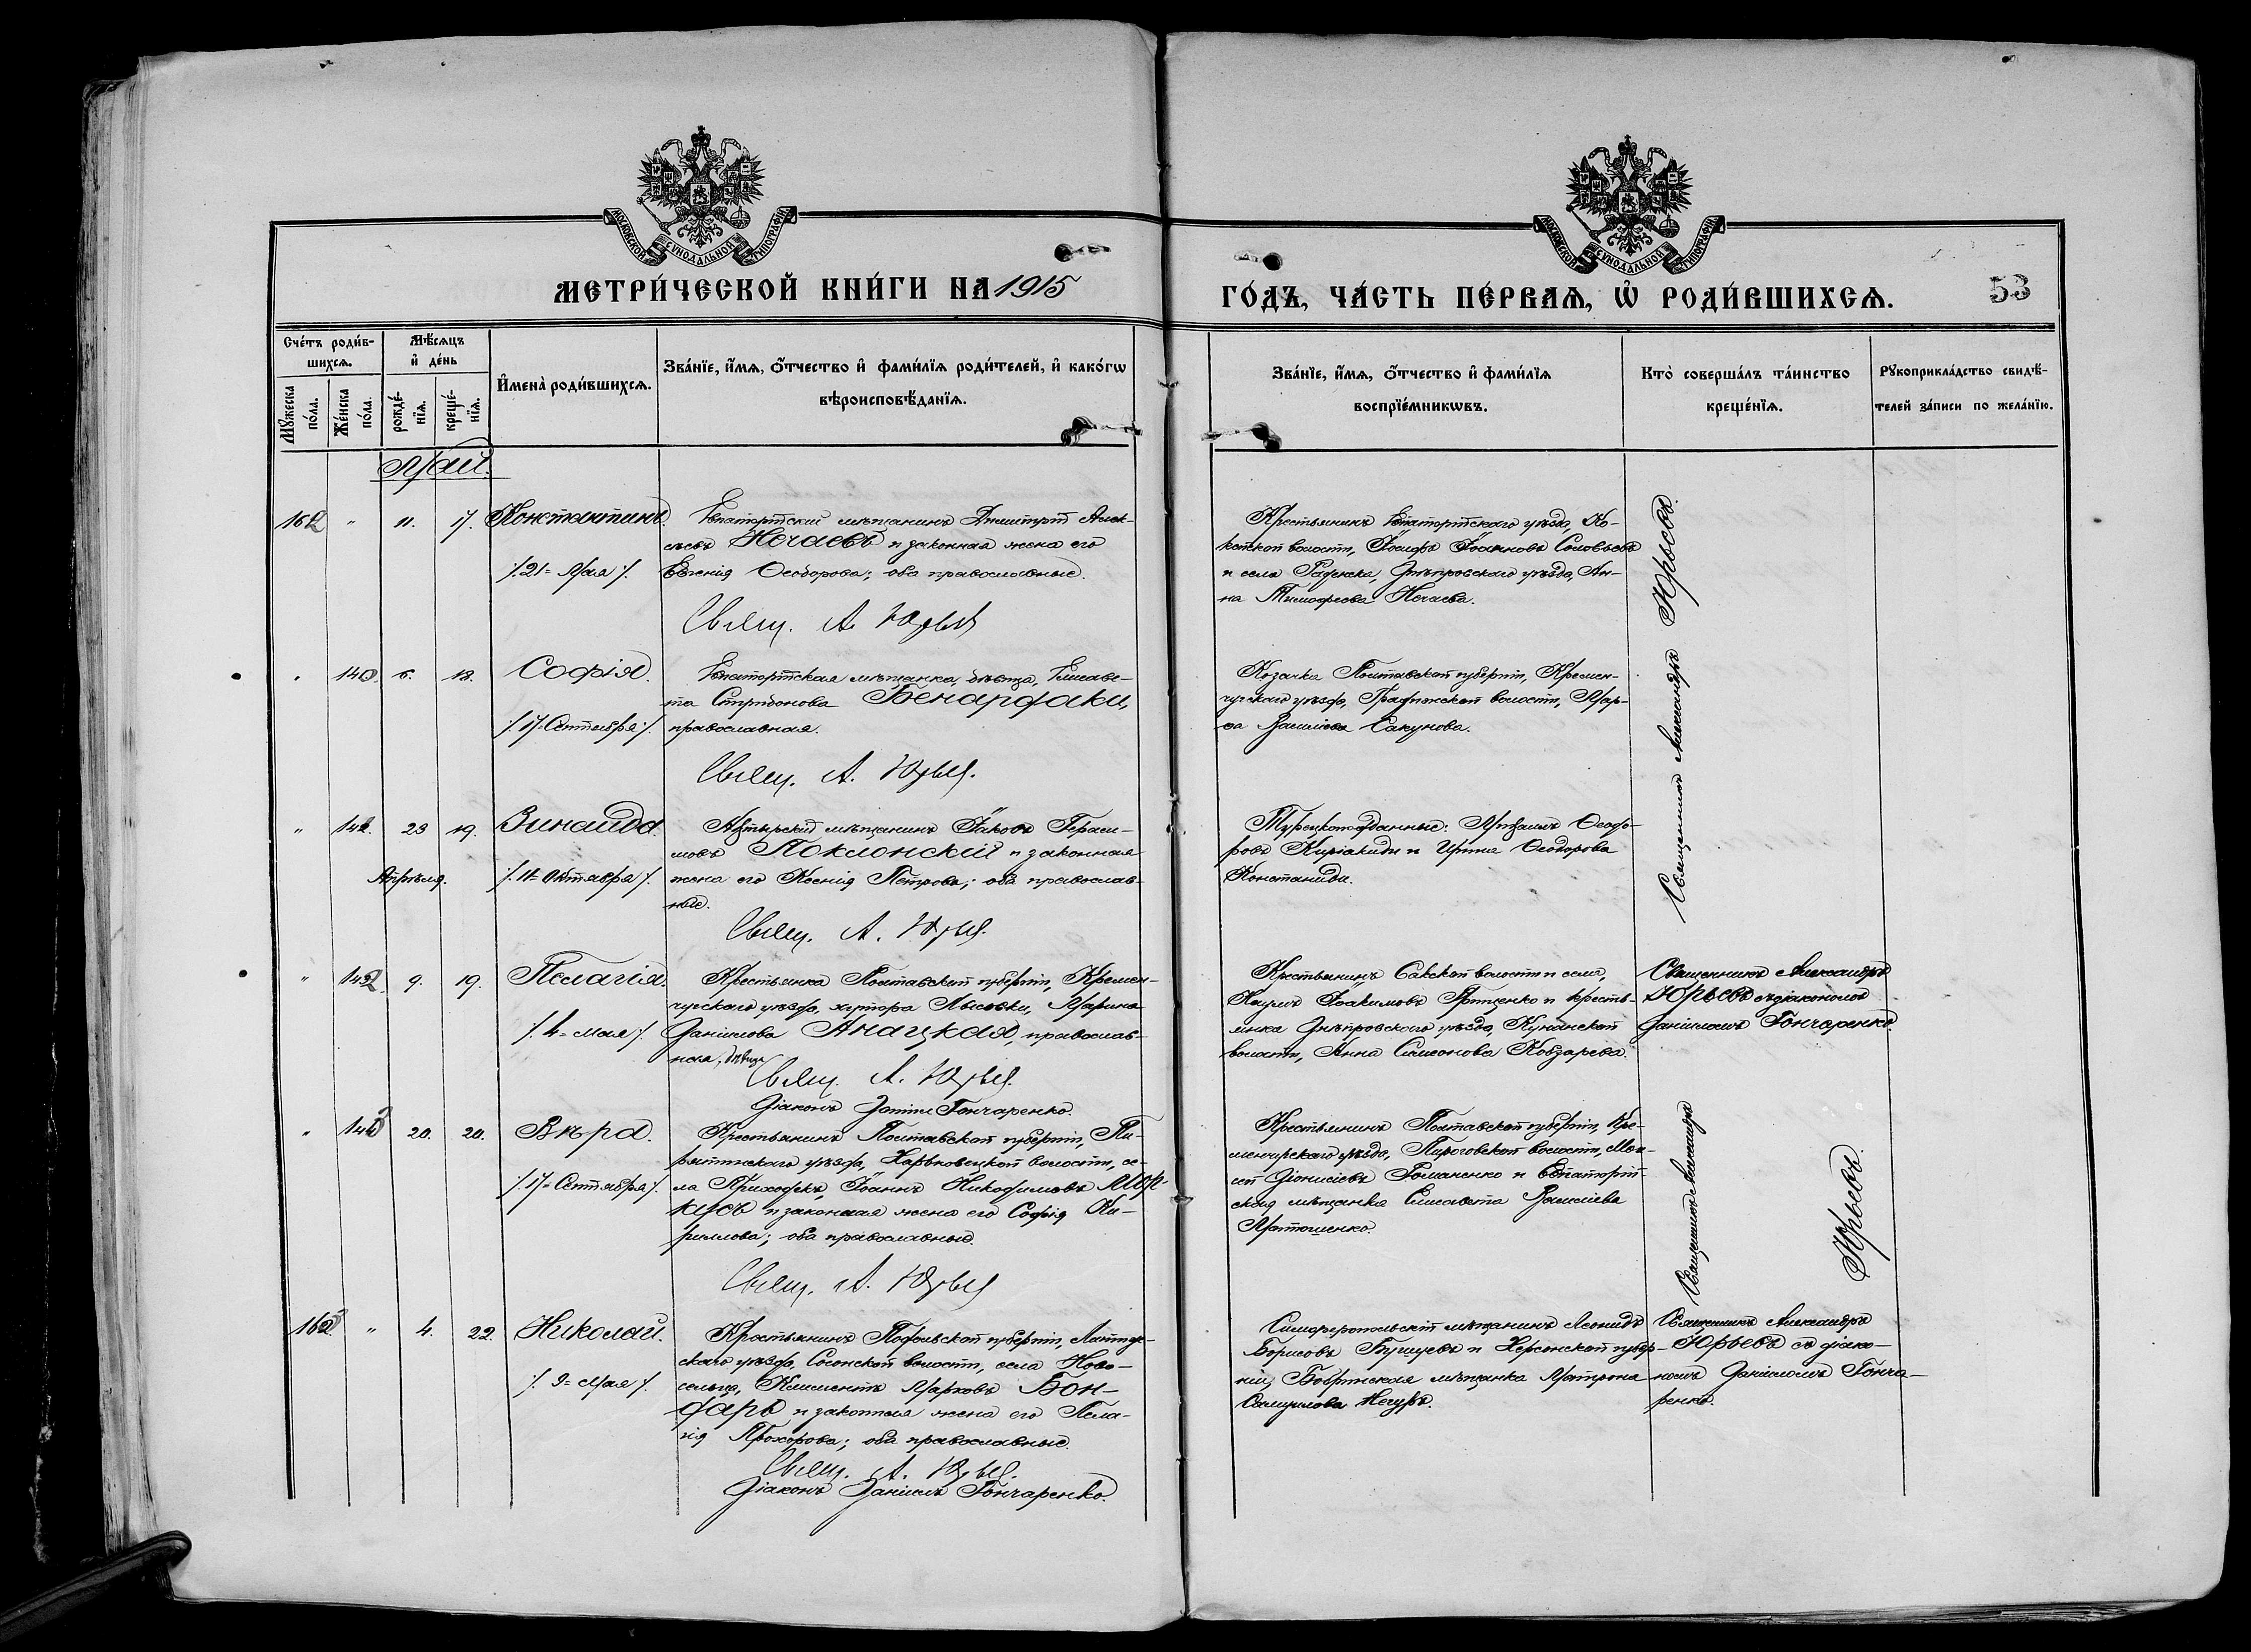 МОСКОВСКОЙ СУНОДАЛЬНОЙ ТИПОГРАФІИ
МОСКОВСКОЙ СУНОДАЛЬНОЙ ТИПОГРАФІИ
МЕТРИ́ЧЕСКОЙ КНИ́ГИ НА 1915
ГО́ДЪ, ЧА́СТЬ ПЕ́РВАѦ, Ѡ҆ РОДИ́ВШИХСѦ.
53
Сче́тъ роди́в-
шихсѧ.
Мꙋ́жеска по́ла.
Же́нска по́ла.
Мѣ́сѧцъ
и҆ де́нь
рожде́-
нїѧ.
креще́-
нїѧ.
И҆мена̀ роди́вшихсѧ.
Зва́нїе, и҆́мѧ, ѻ҆́тчество и҆ фами́лїѧ роди́телей, и҆ како́гѡ
вѣроисповѣ́данїѧ.
Зва́нїе, и҆́мѧ, ѻ҆́тчество и҆ фами́лїѧ
воспрїе́мникѡвъ.
Кто̀ соверша́лъ та́инство
креще́нїѧ.
Рꙋкоприкла́дство свидѣ́-
телей за́писи по жела́нїю.
Май.
162 " 11. 17. Константинъ.
/. 21= Мая /.
Евпаторійскій мѣщанинъ Димитрій Алек-
сѣевъ Нечаевъ и законная жена его
Евгенія Ѳеодорова; оба православные.
Свящ. А. Юрьев
Крестьянинъ Евпаторійскаго уѣзда, Ко-
волости, Іосифъ Соловьевъ
и села Раденска, Днѣпровскаго уѣзда, Ан-
на Тимофеева Нечаева.
" 140. 6. 18. Софія.
/. 17= Сентября /.
Евпаторійская мѣщанка, дѣвица, Елисаве-
та Спиридонова Бенардаки,
православная.
Свящ. А. Юрьев.
Козачка Полтавской губерніи, Кремен-
чугскаго уѣзда, Градижской волости, Мар-
ѳа Василіева Сакунова.
" 141. 23 19. Зинаида.
Апрѣля.
/. 11= Октября /.
Ахтырскій мѣщанинъ Іаковъ Гераси-
мовъ Поклонскій и законная
жена его Ксенія Петрова; оба православ-
ные.
Свящ. А. Юрьев.
Турецкоподданные: Ѳеодо-
ровъ Киріакиди и Ирина Ѳеодорова
Константиди.
Священникъ Александръ Юрьевъ.
" 142. 9. 19. Пелагія.
/. 4= мая /.
Крестьянка Полтавской губерніи, Кремен-
чугскаго уѣзда, хутора Лысовки, Марина
Даніилова Анацкая, православ-
ная, дѣвица
Свящ. А. Юрьев.
Діаконъ Даніилъ Гончаренко.
Крестьянинъ Сакской волости и села,
Наумъ Іоакимовъ Прищенко и кресть-
янка Днѣпровскаго уѣзда,
волости, Анна Симеонова Кобзарева.
Священникъ Александръ
Юрьевъ съ діакономъ
Даніиломъ Гончаренко.
" 143 20. 20. Вѣра.
/. 17= Сентября /.
Крестьянинъ Полтавской губерніи, Пи-
рятинскаго уѣзда, Харьковецкой волости, се-
ла Приходекъ, Іоаннъ Никодимовъ
и законная жена его Софія Ки-
риллова; оба православные.
Свящ. А. Юрьев
Крестьянинъ Полтавской губерніи, Кре-
менчугскаго уѣзда, Пироговской волости, Мои-
сей Діонисіевъ Романенко и Евпаторій-
ская мѣщанка Елисавета Василіева
Матюшенко.
Священникъ Александръ
Юрьевъ.
163. " 4. 22. Николай.
/. 9= Мая /.
Крестьянинъ Подольской губерніи, Летичев-
скаго уѣзда, волости, села Ново-
сельца, Климентъ Марковъ Бон-
дарь и законная жена его Пела-
гія Прохорова; оба православные.
Свящ. А. Юрьев.
Діаконъ Даніилъ Гончаренко.
Симферопольскій мѣщанинъ Леонидъ
Борисовъ и Херсонской губер-
ніи, Бобринская мѣщанка Матрона
Самуилова
Священникъ Александръ
Юрьевъ съ діако-
номъ Даніиломъ Гонча-
ренко.